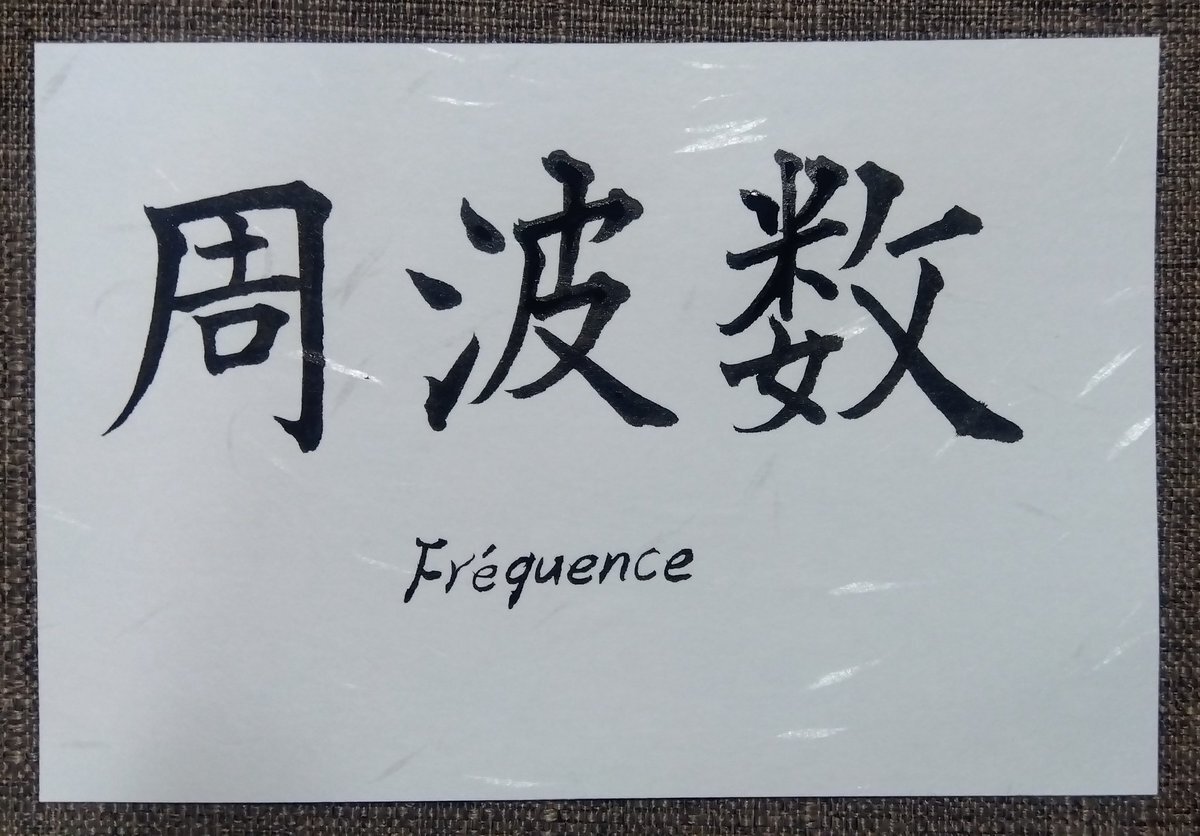 周波数
Fréquence